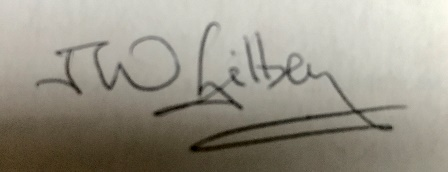 JW Gilbey